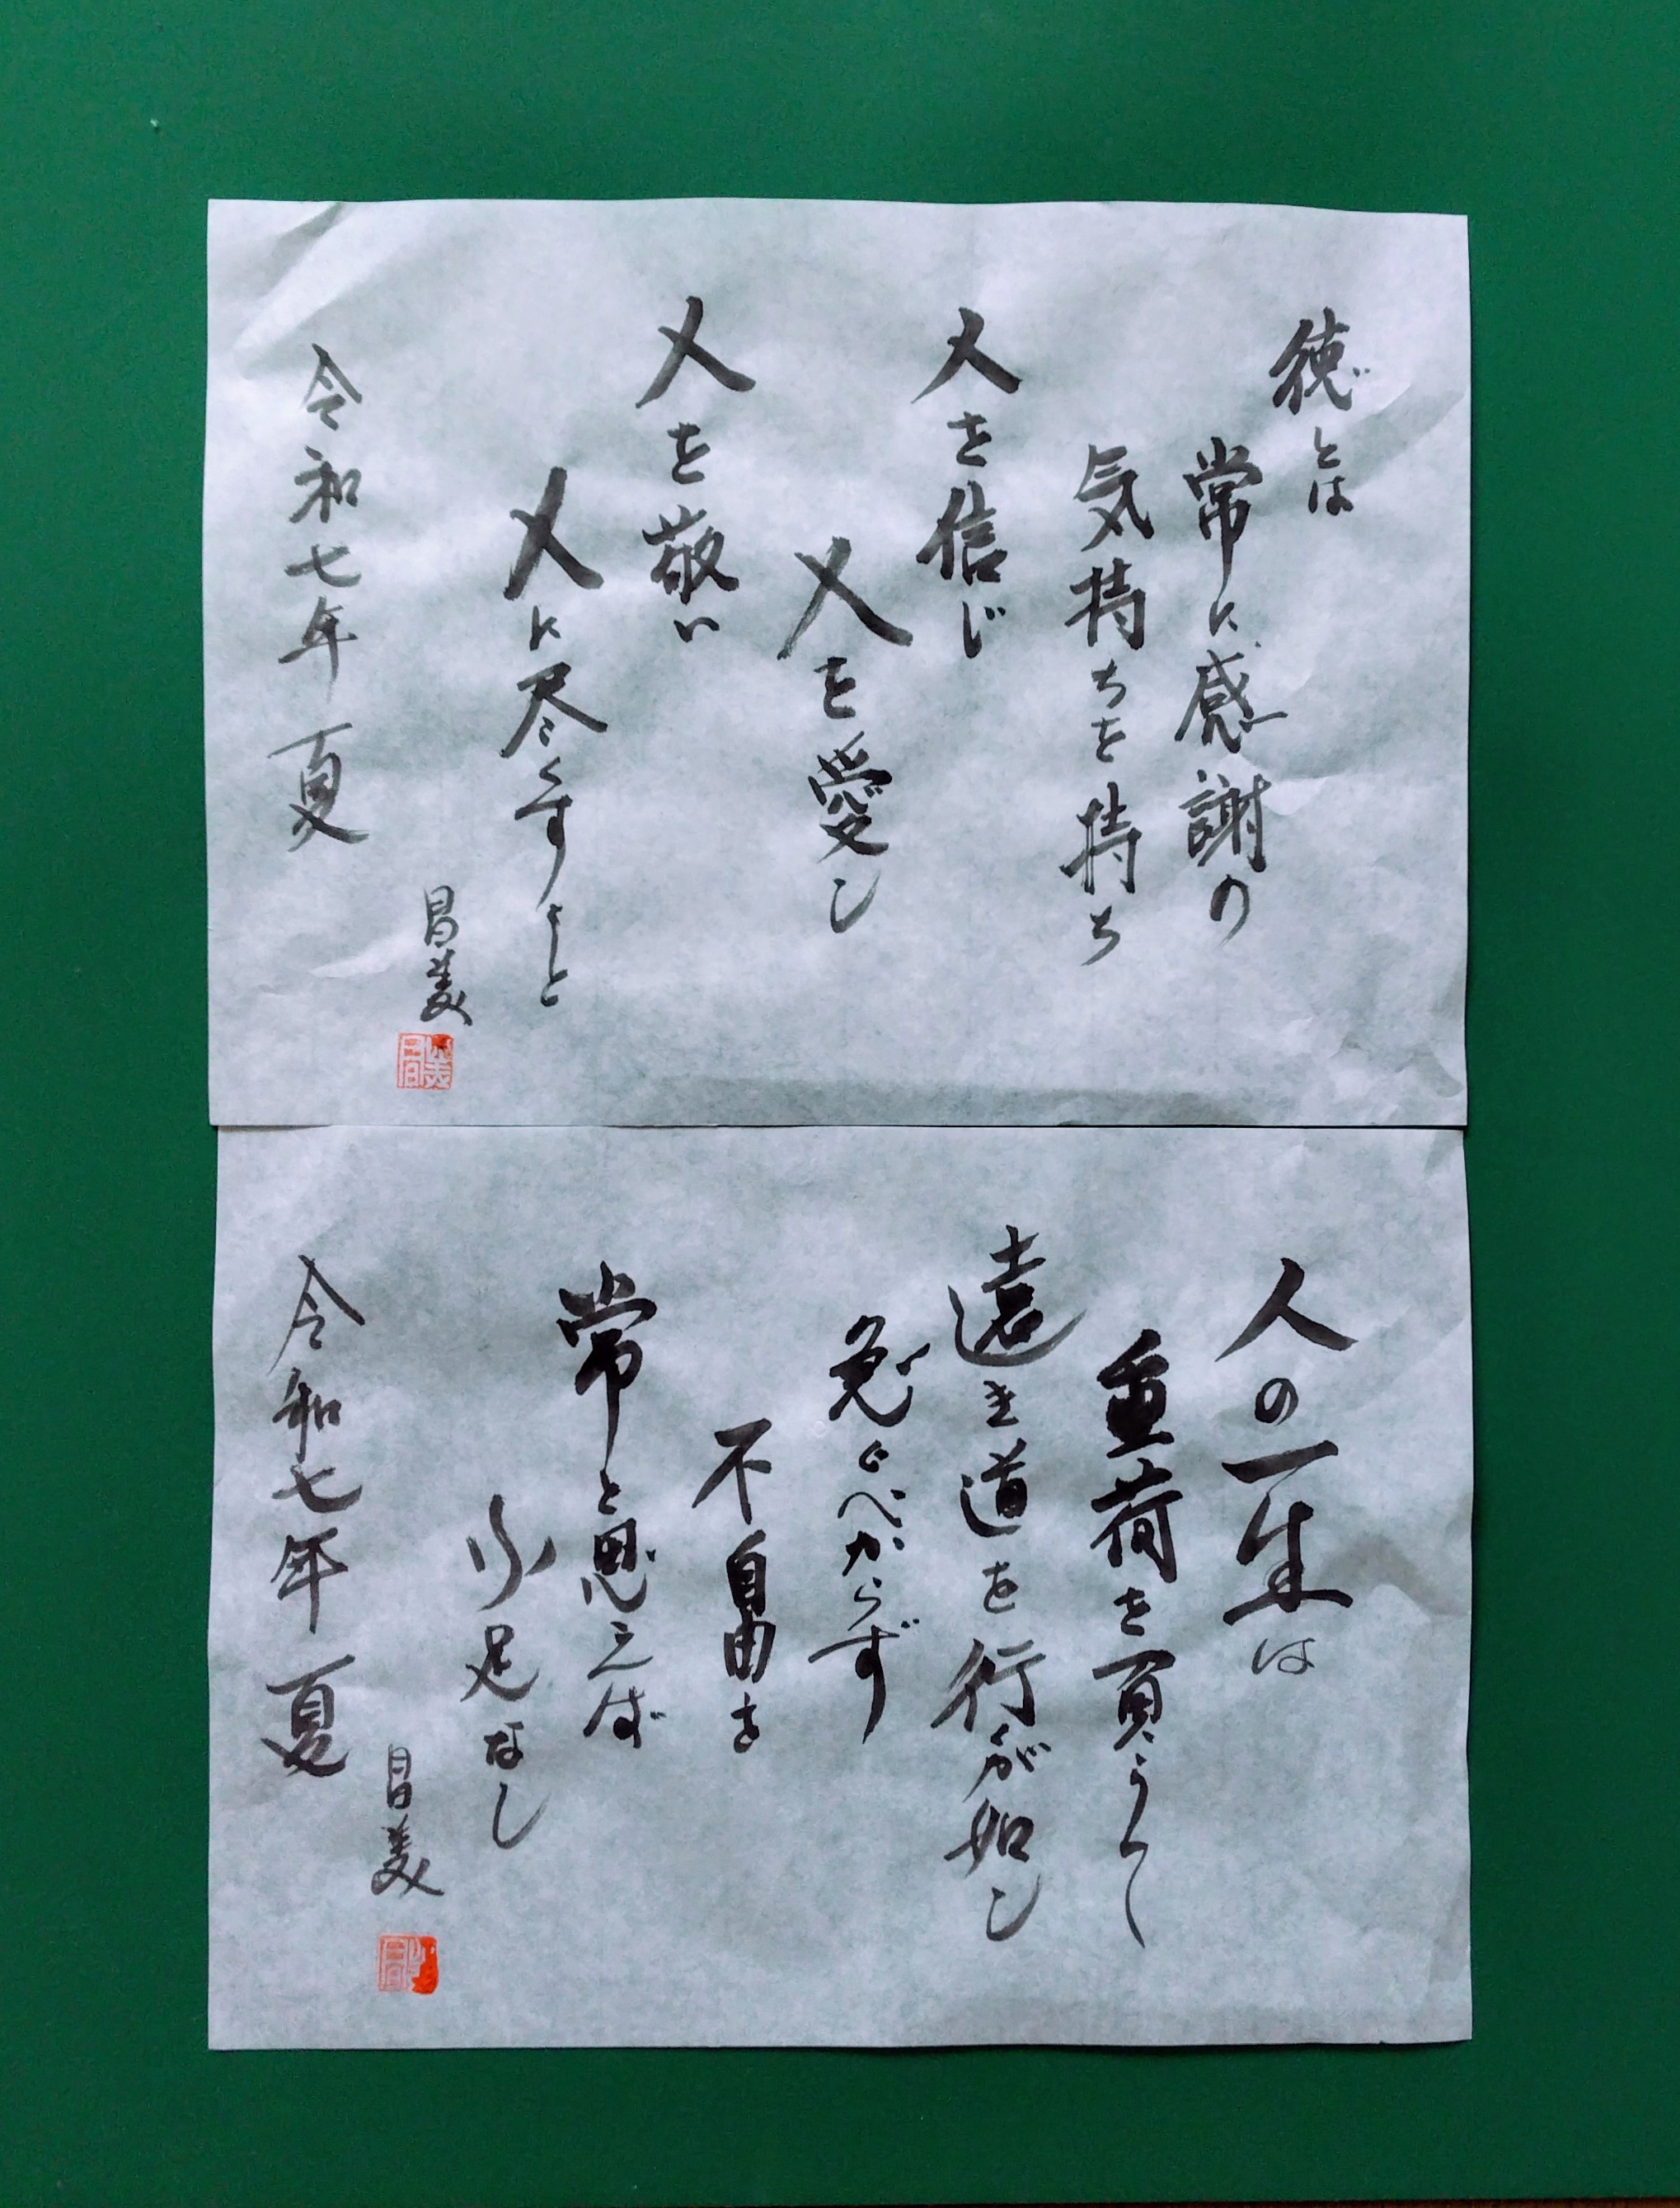 徳とは
常に感謝の
気持ちを持ち
人を信じ
人を愛し
人を敬い
人に尽くすこと
令和七年夏
昌美
人の一生は
重荷を負うて
遠き道を行が如し
急ぐべからず
不自由を
常と思えば
不足なし
令和七年夏
昌美